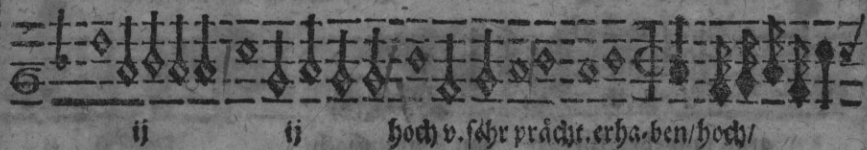 ij ij hoch v. sehr prächt. erha-ben/hoch/